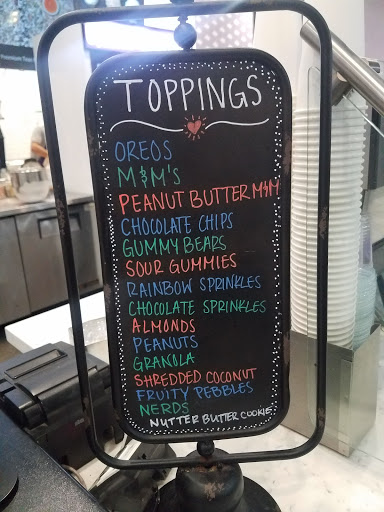 TOPPINGS
OREOS
M&M's
PEANUT BUTTER M&M
CHOCOLATE CHIPS
GUMMY BEARS
SOUR GUMMIES
RAINBOW SPRINKLES
CHOCOLATE SPRINKLES
ALMONDS
PEANUTS
GRANOLA
SHREDDED COCONUT
FRUITY PEBBLES
NERDS
NUTTER BUTTER COOKIE